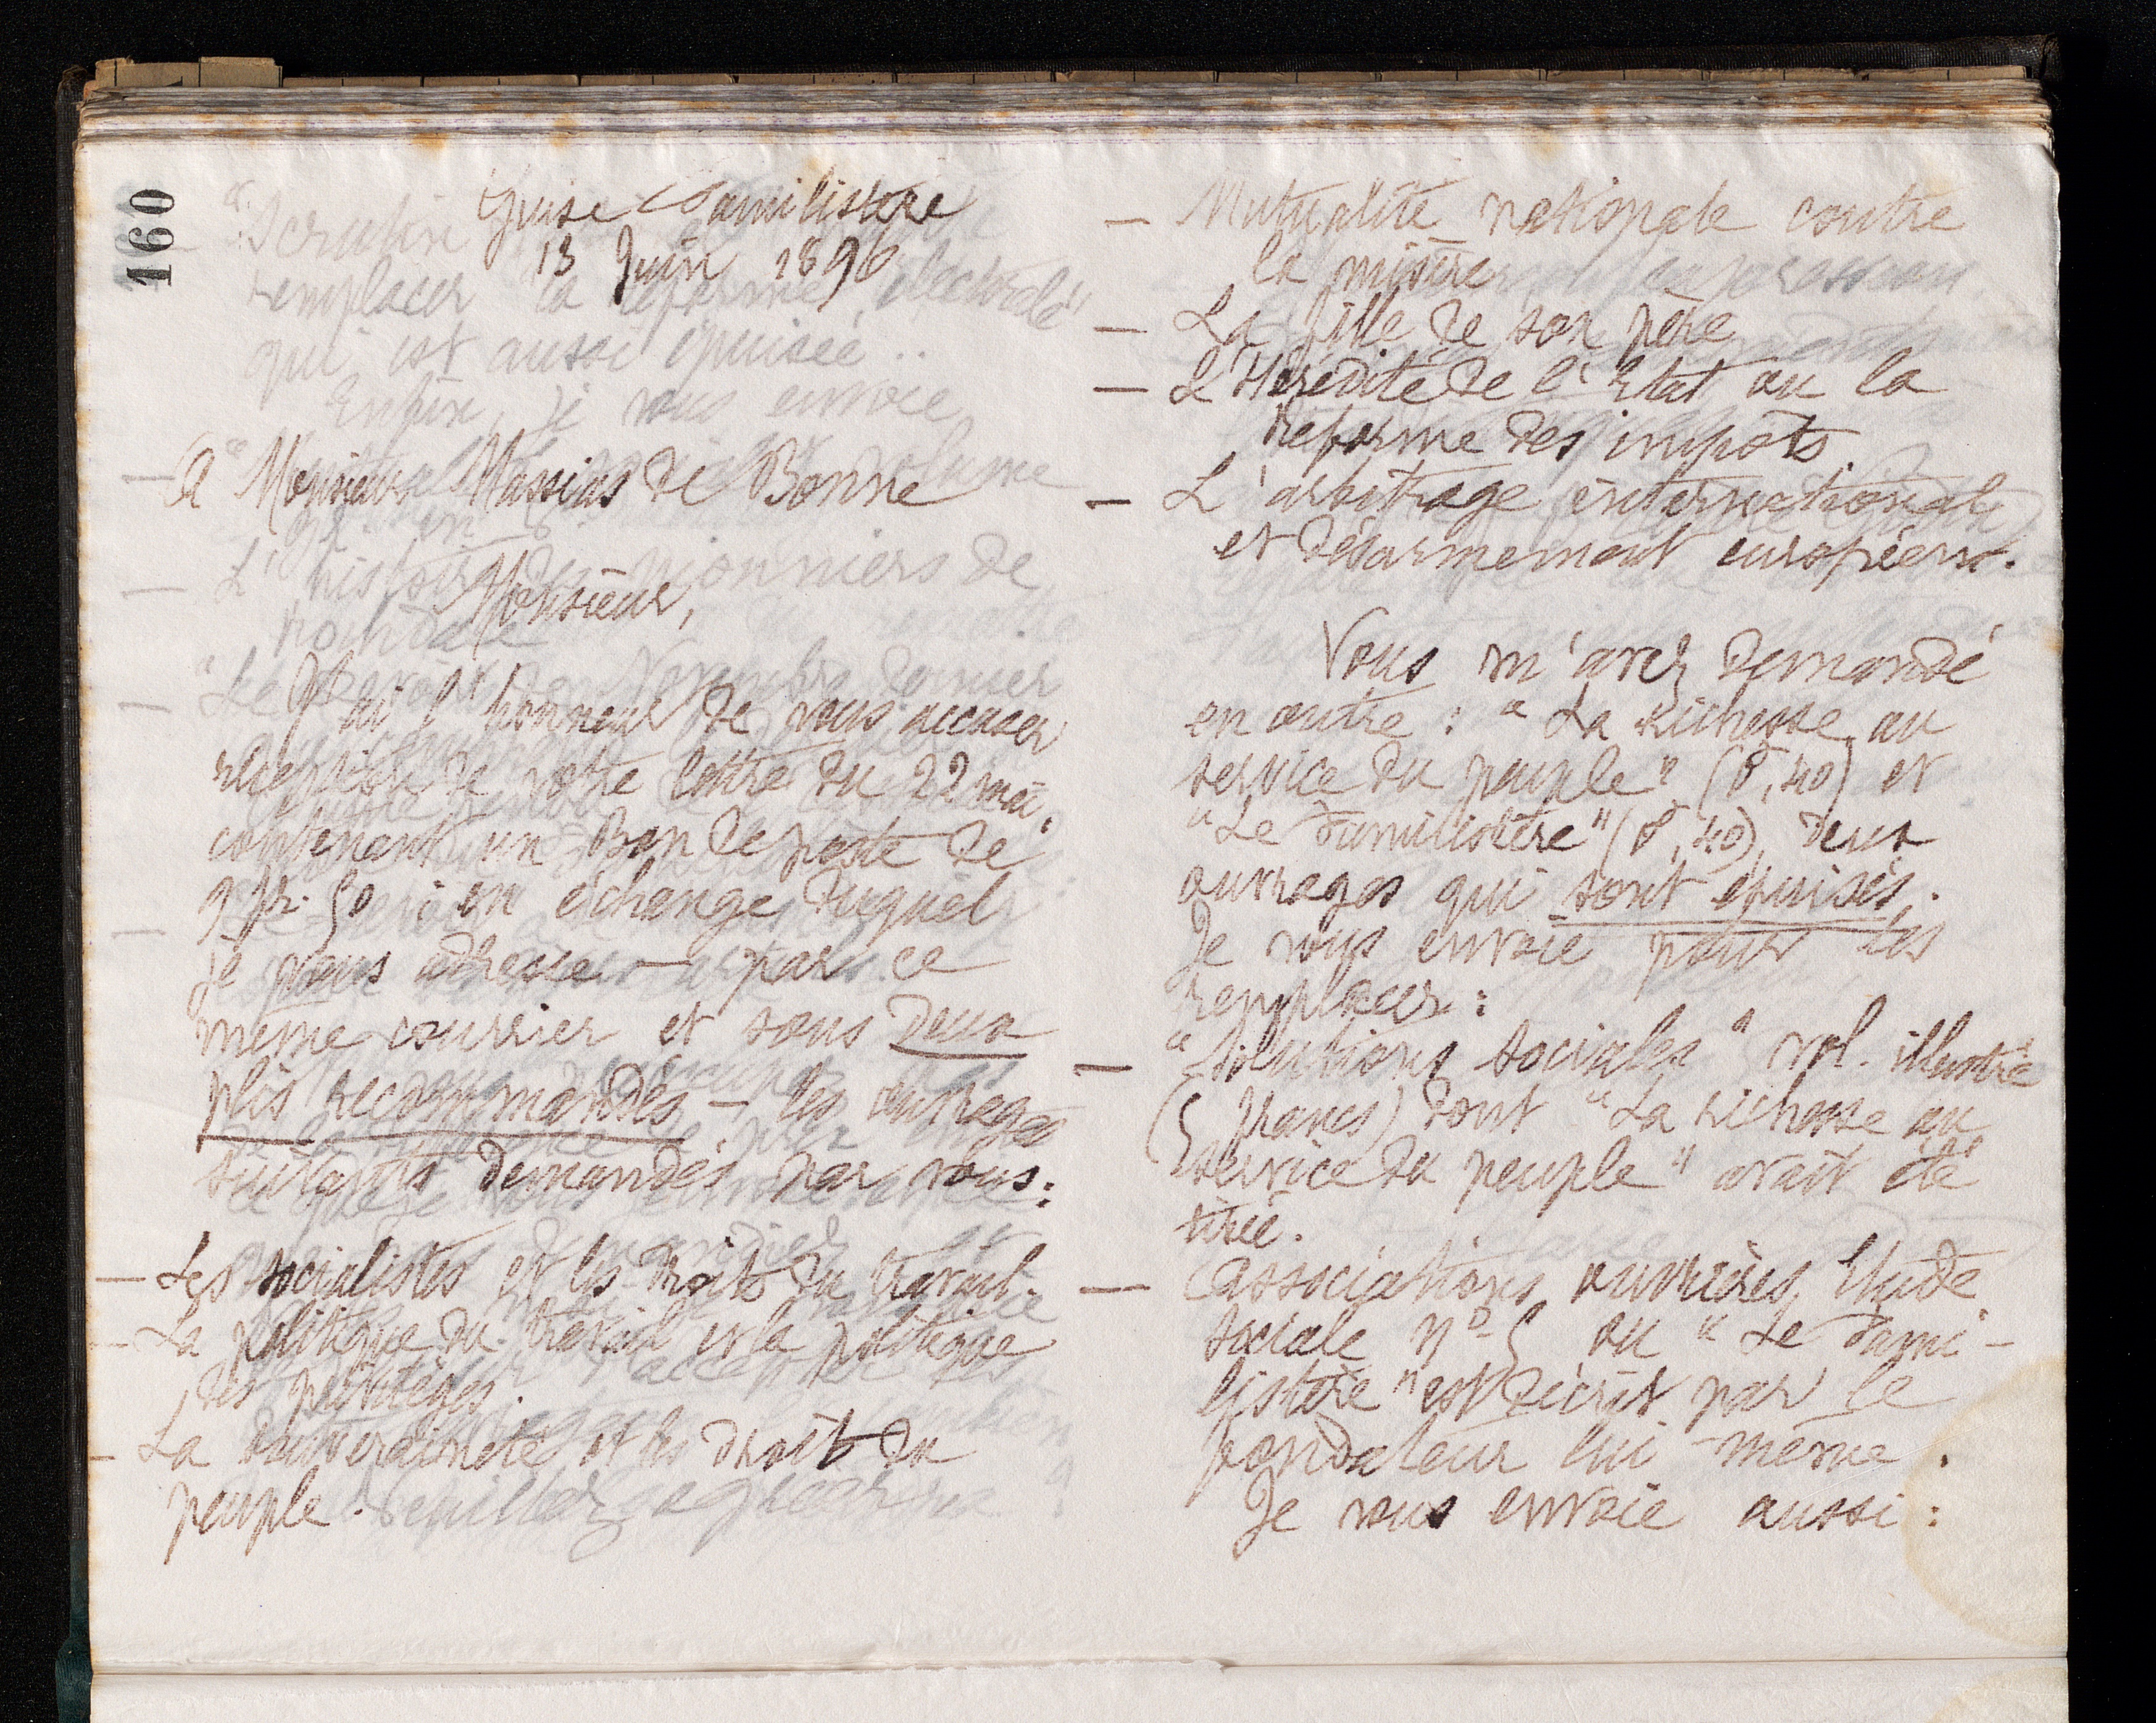 160
Guise Familistère
13 Juin 1896
A Monsieur Massias de Bonne
Monsieur,
J'ai l'honneur de vous accuser
réception de votre lettre du 22 mai,
contenant un Bon de poste de
9 fr. 50 ; en échange duquel
je vous adresse — par ce
même courrier et sous deux
plis recommandés — les ouvrages
suivants demandés par vous :
— Les socialistes et les droits du travail.
— La politique du travail et la politique
des privilèges.
— La souveraineté et les droits du
peuple.
— Mutualité nationale contre
la misère
— La fille de son père
— L'Hérédité de l'Etat ou la
réforme des impôts.
— L'arbitrage international
et désarmement européen.
Vous m'avez demandé
en outre : "La richesse au
service du peuple" (0,40) et
"Le Familistère" (0,40), deux
ouvrages qui sont épuisés.
Je vous envoie pour les
remplacer :
— "Solutions sociales" vol. illustré
(5 francs) dont "La richesse au
service du peuple" avait été
tirée.
— Associations ouvrières, Etude
sociale n° 5 où "Le Fami-
listère" est décrit par le
fondateur lui-même.
Je vous envoie aussi :